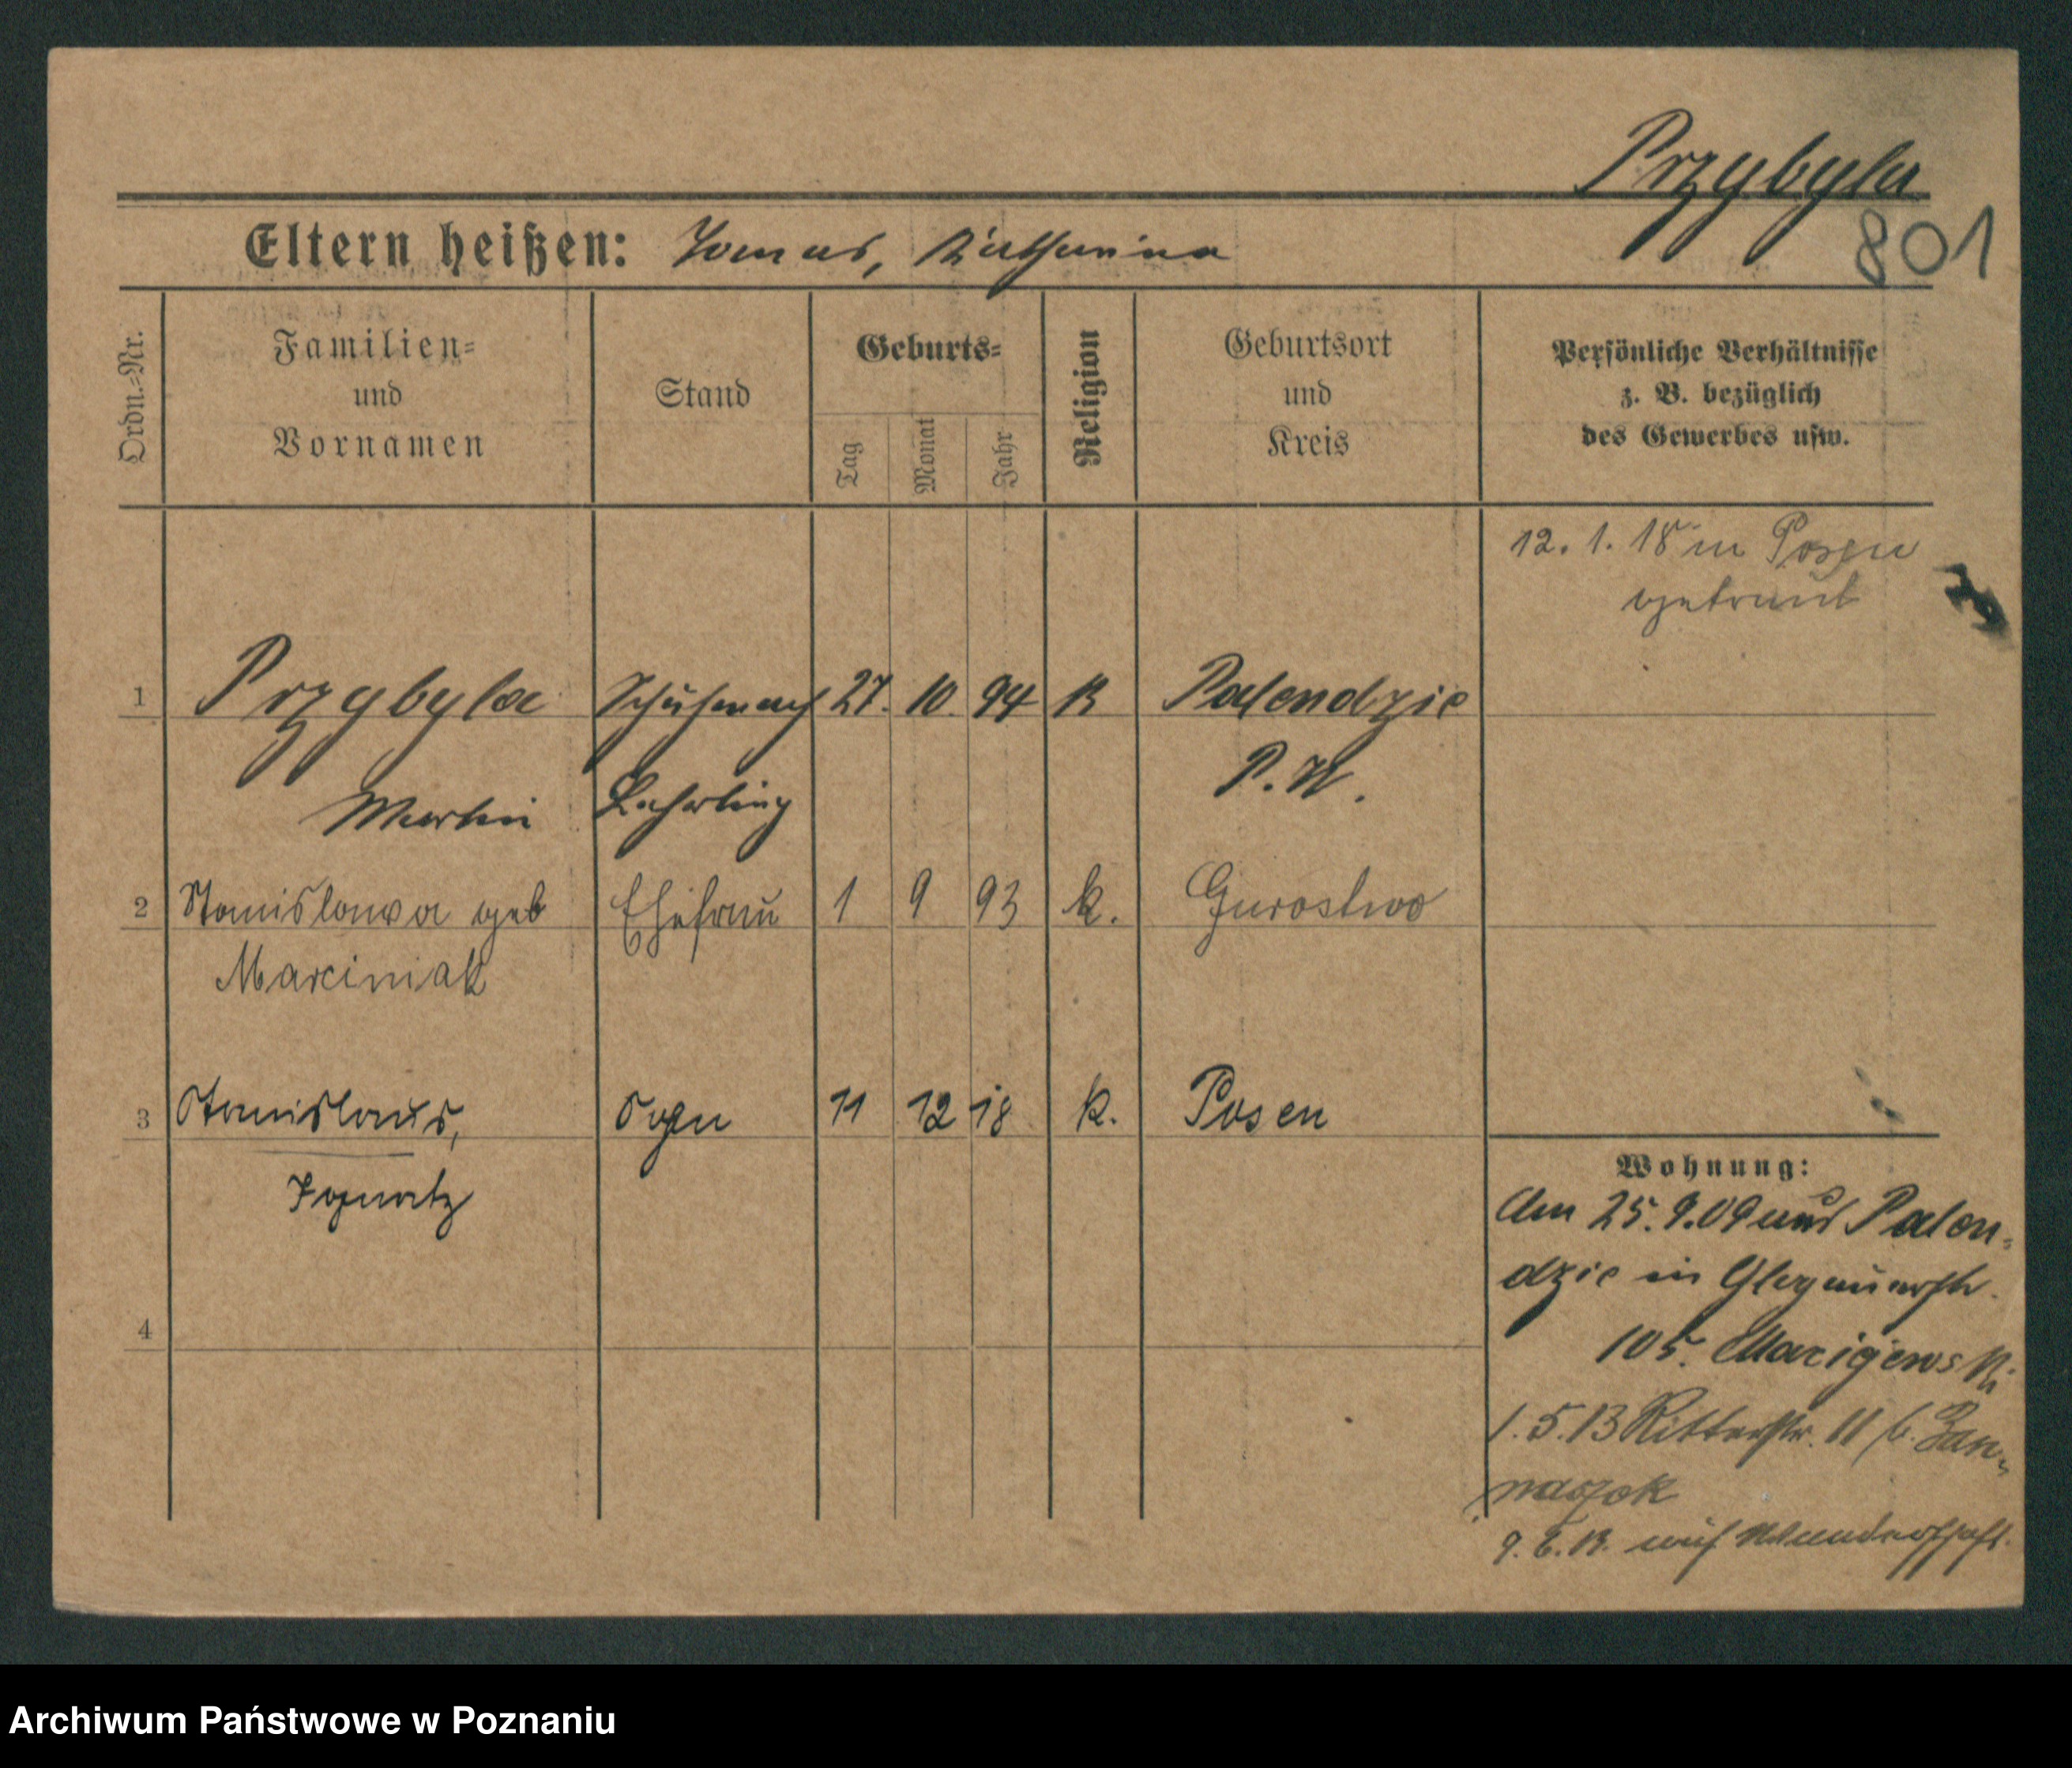 Przybyla
801
Eltern heißen: Tomas, Katharina
Ordn.=Nr.
Familien=
und
Vornamen
Stand
Geburts=
Tag
Monat
Jahr
Religion
Geburtsort
und
Kreis
Persönliche Verhältnisse
z. B. bezüglich
des Gewerbes usw.
12. 1. 18 in Posen
getraut
1 Przybyla Schuhmach 27. 10. 94 K Palendzie
Martin Lehrling P. W.
2 Stanislawa geb Ehefrau 1 9 93 k. Gurostwo
Marciniak
3 Stanislaus, Sohn 11 12 18 k. Posen
Ignatz
4
Wohnung:
Am 25. 9. 09 aus Palen-
dzie in Glogauerstr.
105.
1. 5. 13 Ritterstr. 11
auf Wanderschaft.
Archiwum Państwowe w Poznaniu